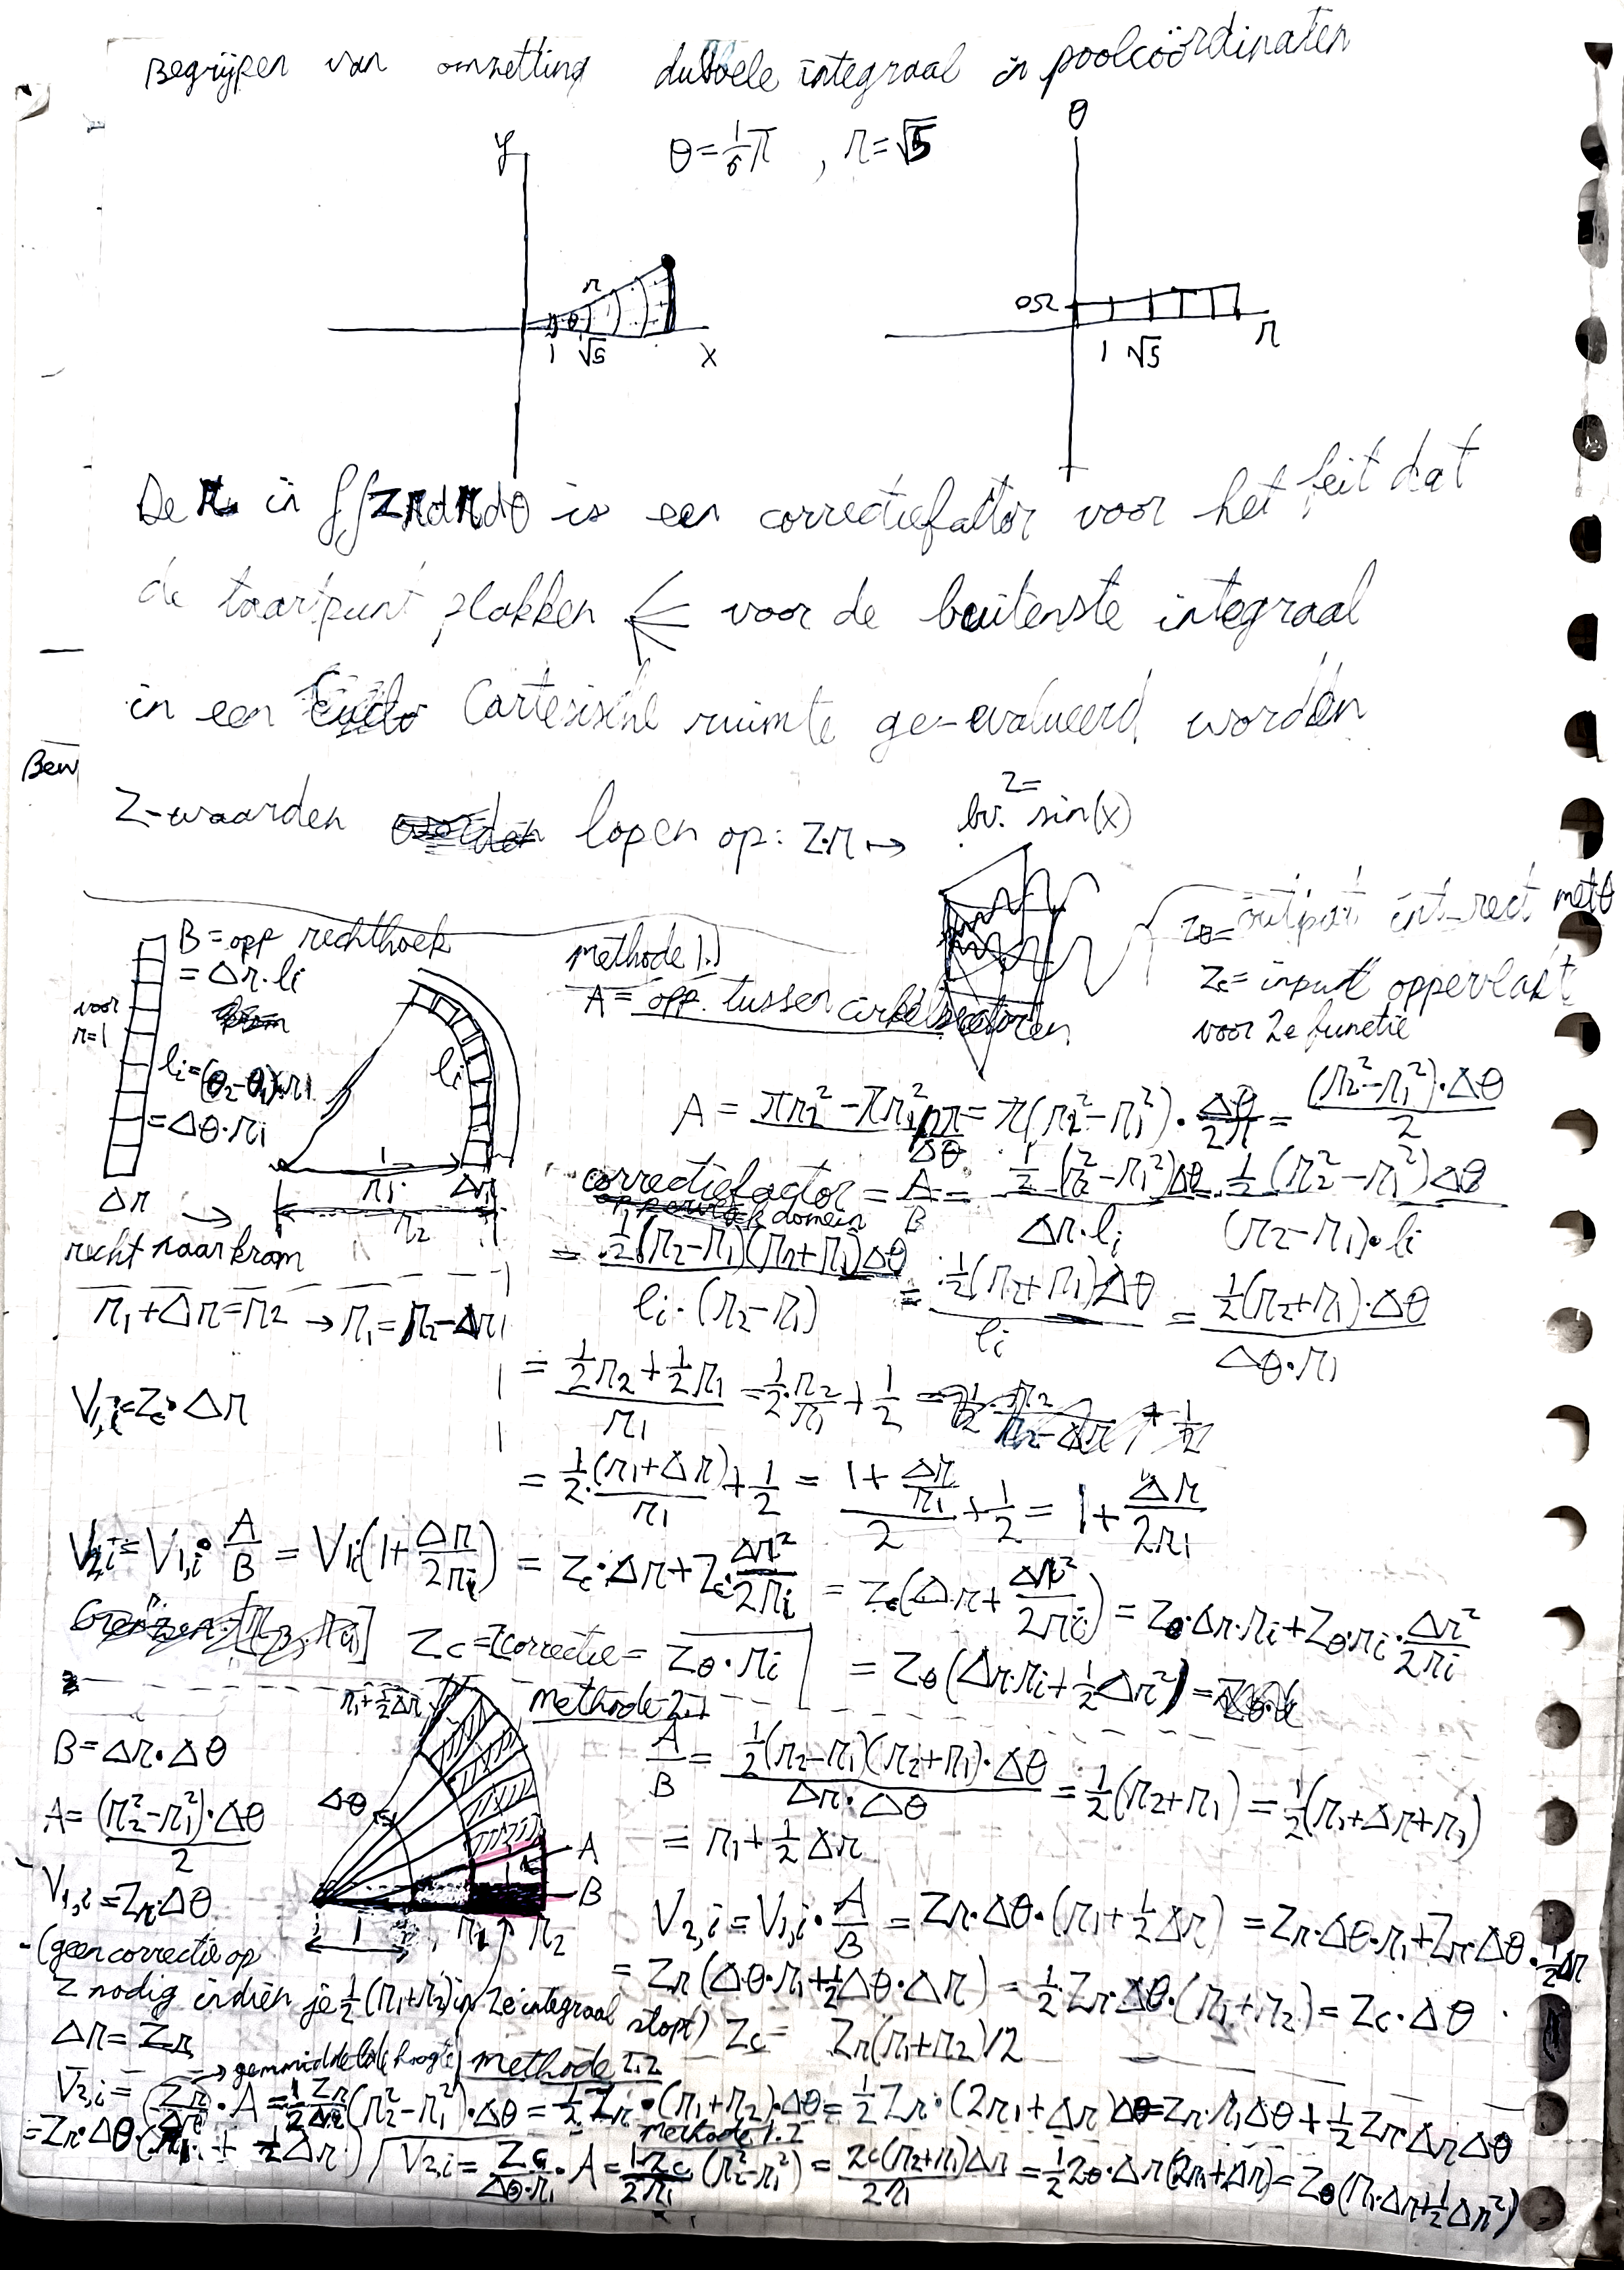 Begrijpen van omzetting dubbele integraal in poolcoördinaten
θ = 1/6 π , r = √5
y
x
r
θ
1 √5
θ
r
1 √5
De r in ∫∫ z r dr dθ is een correctiefactor voor het feit dat
de taartpunt plakken ← voor de buitenste integraal
in een Cartesische ruimte ge-evalueerd worden
Bew
Z-waarden lopen op: z·r → bv. z = sin(x)
zθ = output int rect met θ
zc = input oppervlakt
voor 2e functie
B = opp rechthoek
= Δr · li
voor
r=1
li = (θ2-θ1)·r1
= Δθ·ri
Δr →
recht naar krom
li
r1 Δr
r2
r1 + Δr = r2 → r1 = r2 - Δr
methode 1.)
A = opp. tussen cirkelsectoren
A = π(r2² - r1²) · Δθ/2π = (r2² - r1²)·Δθ / 2
correctiefactor = A/B = ½(r2² - r1²)Δθ / Δr·li = ½(r2² - r1²)Δθ / (r2 - r1)·li
domein
= ½(r2 - r1)(r2 + r1)Δθ / li·(r2 - r1) = ½(r2 + r1)Δθ / li = ½(r2 + r1)·Δθ / Δθ·r1
= (½r2 + ½r1) / r1 = ½·r2/r1 + ½
= ½·(r1 + Δr)/r1 + ½ = (1 + Δr/r1)/2 + ½ = 1 + Δr/2r1
V1,i = Zc·Δr
V2,i = V1,i·A/B = V1,i(1 + Δr/2ri) = Zc·Δr + Zc·Δr²/2ri = Zc(Δr + Δr²/2ri) = Zθ·Δr·ri + Zθ·ri·Δr²/2ri
Zc = Zcorrectie = Zθ·ri
= Zθ(Δr·ri + ½Δr²)
methode 2.1
r1 + ½Δr
Δθ
A
B
1
r1 r2
B = Δr·Δθ
A = (r2² - r1²)·Δθ / 2
V1,i = Zr·Δθ
A/B = ½(r2 - r1)(r2 + r1)·Δθ / Δr·Δθ = ½(r2 + r1) = ½(r1 + Δr + r1)
= r1 + ½Δr
V2,i = V1,i·A/B = Zr·Δθ·(r1 + ½Δr) = Zr·Δθ·r1 + Zr·Δθ·½Δr
= Zr(Δθ·r1 + ½Δθ·Δr) = ½Zr·Δθ·(r1 + r2) = Zc·Δθ
- (geen correctie op
Z nodig indien je ½(r1 + r2) in 2e integraal stopt)
Zc = Zr(r1 + r2)/2
Δr = Zr
→ gemiddelde hoogte
methode 2.2
V2,i = Zr/Δr · A = ½ Zr/Δr (r2² - r1²)·Δθ = ½Zr·(r1 + r2)·Δθ = ½Zr·(2r1 + Δr)Δθ = Zr·r1Δθ + ½ZrΔrΔθ
= Zr·Δθ·(r1 + ½Δr)
methode 1.2
V2,i = Zc/Δθ·r1 · A = 1Zc/2r1 (r2² - r1²) = Zc(r2 + r1)Δr / 2r1 = ½Zθ·Δr(2r1 + Δr) = Zθ(r1·Δr + ½Δr²)